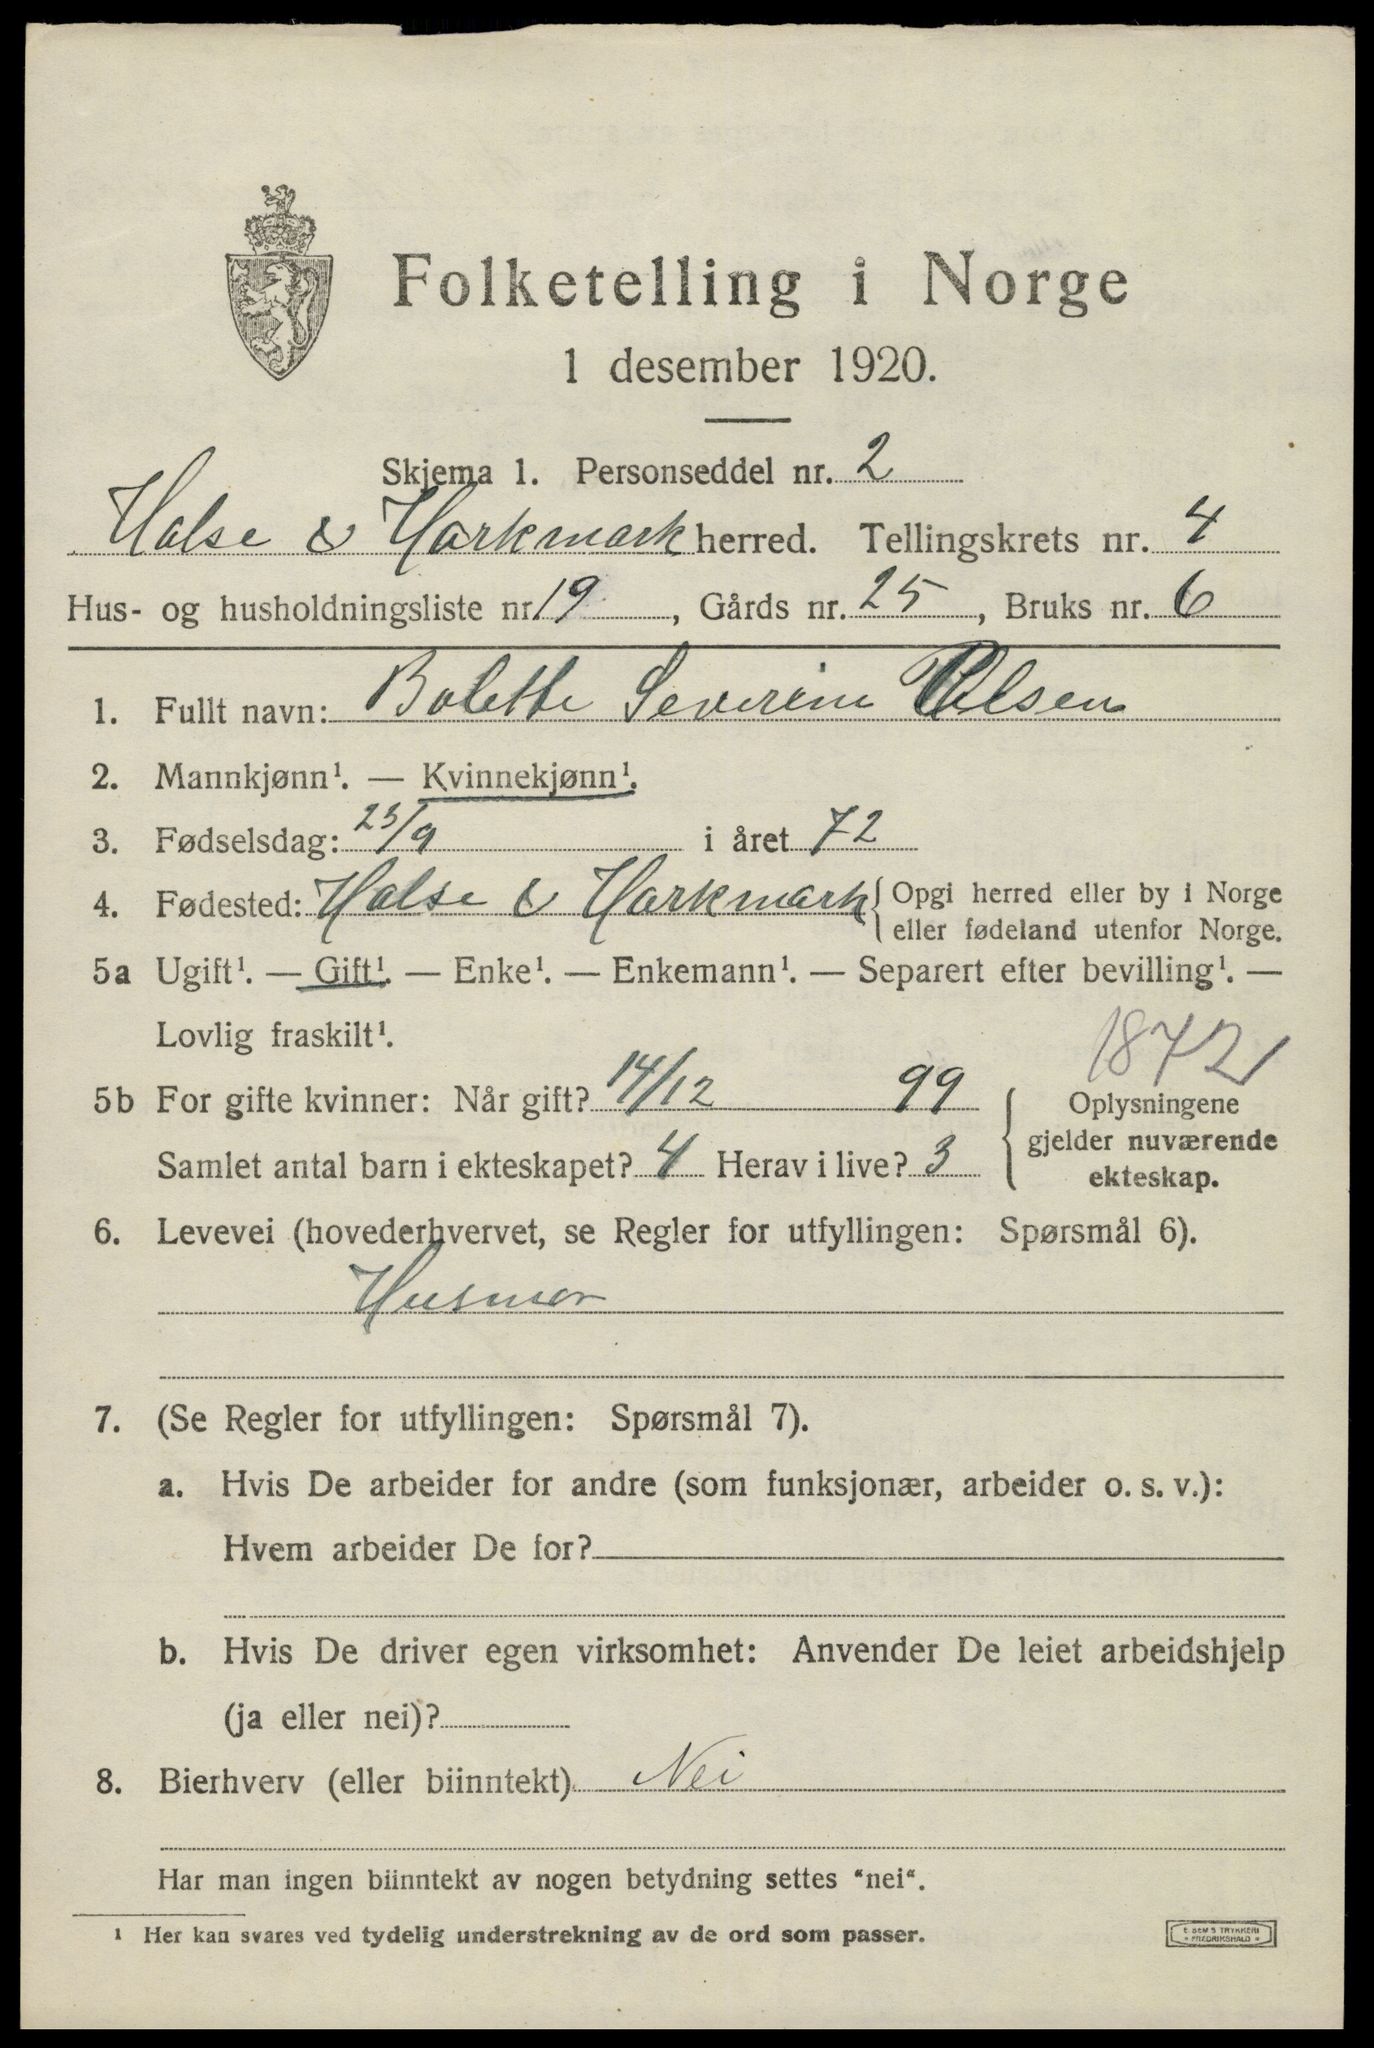 Folketelling i Norge
1 desember 1920.
Skjema 1. Personseddel nr. 2
Halse & Harkmark herred. Tellingskrets nr. 4
Hus- og husholdningsliste nr. 19, Gårds nr. 25, Bruks nr. 6
1. Fullt navn: Bolette Severine Olsen
2. Mannkjønn¹. — Kvinnekjønn¹.
3. Fødselsdag: 23/9 i året 72
4. Fødested: Halse & Harkmark { Opgi herred eller by i Norge
eller fødeland utenfor Norge.
5a Ugift¹. — Gift¹. — Enke¹. — Enkemann¹. — Separert efter bevilling¹. —
Lovlig fraskilt¹.
1872
5b For gifte kvinner: Når gift? 14/12 99
Samlet antal barn i ekteskapet? 4 Herav i live? 3
{ Oplysningene
gjelder nuværende
ekteskap.
6. Levevei (hovederhvervet, se Regler for utfyllingen: Spørsmål 6).
Husmor
7. (Se Regler for utfyllingen: Spørsmål 7).
a. Hvis De arbeider for andre (som funksjonær, arbeider o. s. v.):
Hvem arbeider De for?
b. Hvis De driver egen virksomhet: Anvender De leiet arbeidshjelp
(ja eller nei)?
8. Bierhverv (eller biinntekt) Nei
Har man ingen biinntekt av nogen betydning settes "nei".
¹ Her kan svares ved tydelig understrekning av de ord som passer.
E SEM'S TRYKKERI
FREDRIKSHALD